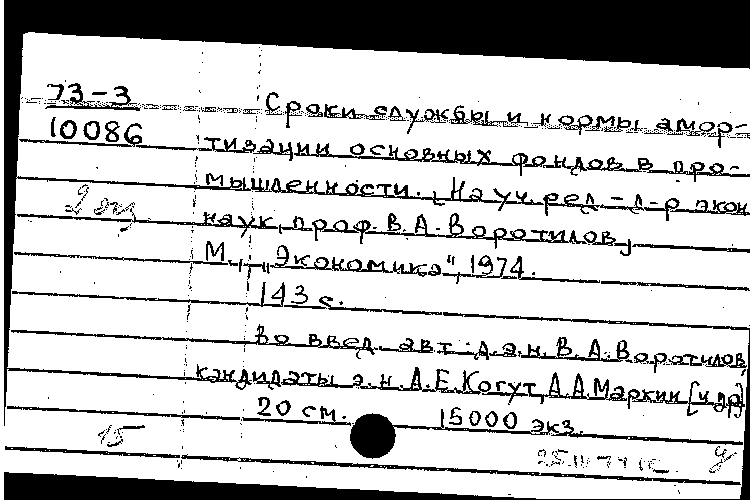 73-3
10086
2 экз.
Сроки службы и нормы амор-
тизации основных фондов в про-
мышленности. [Науч. ред. - д-р экон
наук, проф. В. А. Воротилов]
М., „Экономика", 1974.
143 с.
Во введ. авт.: д.э.н. В. А. Воротилов,
кандидаты э.н. А. Е. Когут, А. А. Маркин [и др]
20 см. 15000 экз.
15